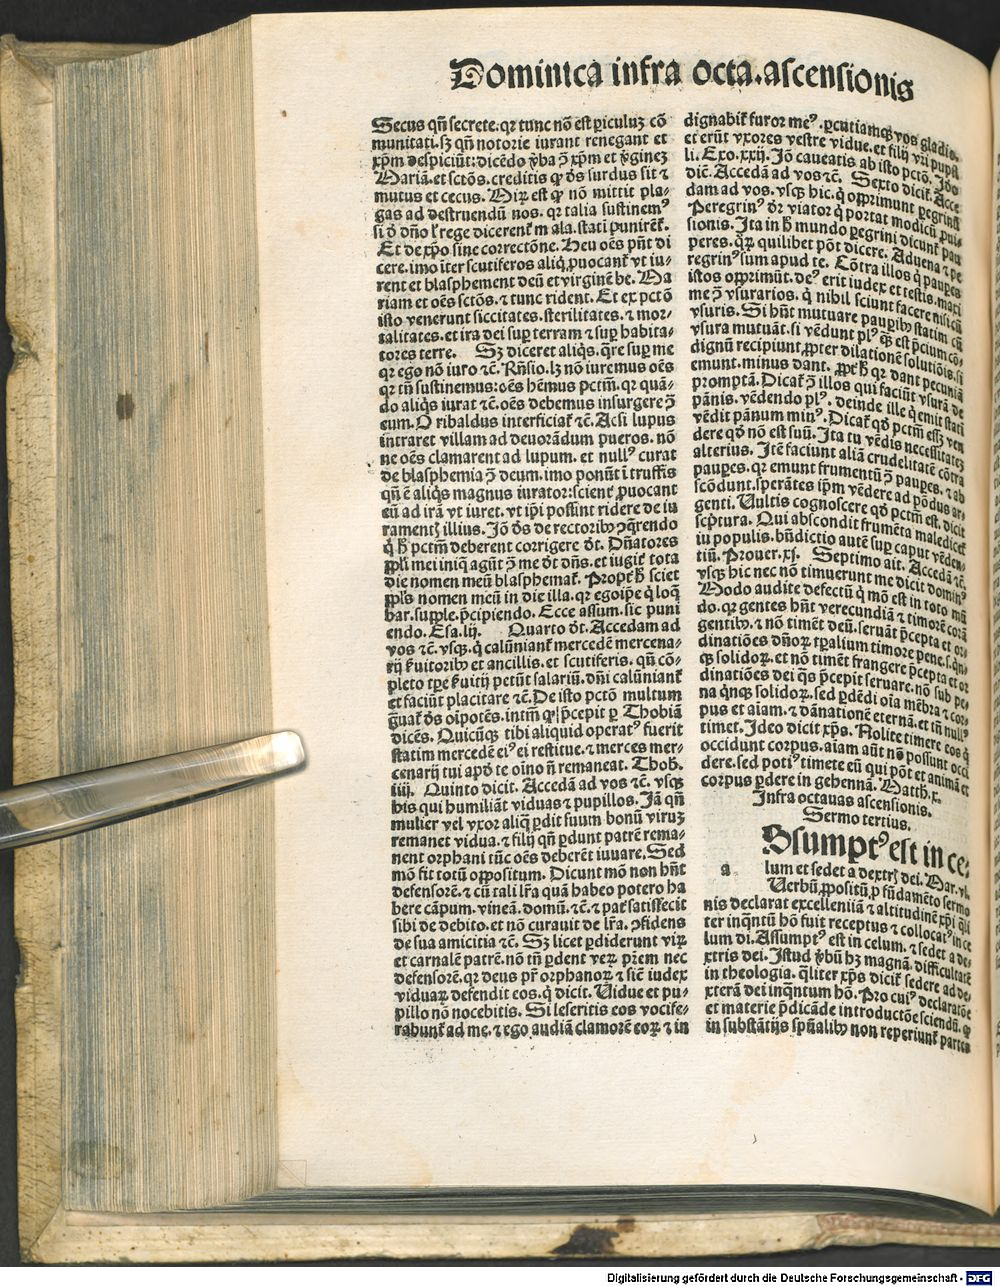 Dominica infra octa.ascensionis
Secus qñ secrete:qꝛ tunc nõ est ꝑiculuȝ cõ
munitati.sȝ qñ notorie iurant renegant et
xp̃m despiciũt:dicẽdo ꝟba ꝯ̃ xp̃m et ꝟgineȝ
Mariã.et sctõs.creditis ꝙ ds̃ surdus sit ⁊
mutus et cecus. Miꝝ est ꝙ nõ mittit pla-
gas ad destruendũ nos. qꝛ talia sustinemꝰ
si ð dño ł rege dicerent̃ mala.statĩ punirẽt̃.
Et de xp̃o sine correctõne. Heu oẽs pñt di
cere.imo iter scutiferos aliq̃ ꝓuocant̃ vt iu-
rent et blasphement deũ et virginẽ be. Ma
riam et oẽs sctõs. ⁊ tunc rident. Et ex pctõ
isto venerunt siccitates.sterilitates. ⁊ moꝛ-
talitates.et ira dei suꝑ terram ⁊ suꝑ habita-
tores terre. Sȝ diceret aliq̃s.q̃re suꝑ me
qꝛ ego nõ iuro ⁊c̃. Rñsio.lȝ nõ iuremus oẽs
qꝛ tñ sustinemus:oẽs hẽmus pctm̃.qꝛ quã-
do aliq̃s iurat ⁊c̃.oẽs debemus insurgere ꝯ̃
eum. O ribaldus interficiat̃ ⁊c̃. Acsi lupus
intraret villam ad deuorãdum pueros. nõ
ne oẽs clamarent ad lupum. et nullꝰ curat
de blasphemia ꝯ̃ deum.imo ponũt i truffis
qñ ẽ aliq̃s magnus iurator:scient̃ ꝓuocant
eũ ad irã vt iuret.vt ip̃i possint ridere de iu
ramentȝ illius. Jõ ds̃ de rectoribꝰ ꝯq̃rendo
q̃ h̃ pctm̃ deberent corrigere ðt. Dñatores
ppl̃i mei iniq̃ agũt ꝯ̃ me ðt dñs.et iugit̃ tota
die nomen meũ blasphemat̃. Propt̃ h̃ sciet
ppl̃s nomen meũ in die illa.qꝛ ego ip̃e q̃ loq̃
bar.supple.p̃cipiendo. Ecce assum.sic puni
endo. Esa.lij. Quarto ðt. Accedam ad
vos ⁊c̃. vsqꝫ.q̃ calũniant̃ mercedẽ mercena-
rij ẜuitoribꝰ et ancillis.et scutiferis.qñ cõ-
pleto tp̃e ẜuitij petũt salariũ.dñi calũniant̃
et faciũt placitare ⁊c̃. De isto pctõ multum
g̃uat̃ ds̃ oĩpotẽs.intm̃ ꝙ p̃cepit ꝑ Thobiã
dicẽs. Quicũqꝫ tibi aliquid operatꝰ fuerit
statim mercedẽ eiꝰ ei restitue.⁊ merces mer-
cenarij tui apð te oĩno ñ remaneat. Thoƀ.
iiij. Quinto dicit. Accedã ad vos ⁊c̃. vsqꝫ
his qui humiliãt viduas ⁊ pupillos. Jã qñ
mulier vel vxor aliq̃ ꝑdit suum bonũ viruȝ
remanet vidua.⁊ filij qñ ꝑdunt patrẽ rema-
nent orphani tũc oẽs deberẽt iuuare. Sed
mõ fit totũ oppositum. Dicunt mõ non hñt
defensorẽ.⁊ cũ tali lr̃a quã habeo potero ha
bere cãpum.vineã.domũ.⁊c̃.⁊ pat̃ satisfecit
sibi de debito.et nõ curauit de lr̃a. ꝯfidens
de sua amicitia ⁊c̃. Sȝ licet ꝑdiderunt viꝝ
et carnalẽ patrẽ.nõ tñ ꝑdent veꝝ pr̃em nec
defensorẽ.qꝛ deus pr̃ orphanoꝝ ⁊ siẽ iudex
viduaꝝ defendit eos.q̃ dicit. Uidue et pu-
pillo nõ nocebitis. Si leseritis eos vocife-
rabunt̃ ad me.⁊ ego audiã clamorẽ eoꝝ ⁊ in
dignabit̃ furor meꝰ.ꝑcutiamqꝫ vos gladio.
et erũt vxores vestre vidue.et filij vr̃i pupil
li. Exo.xxij. Jõ caueatis ab isto pctõ. Jdo
dic̃. Accedã ad vos ⁊c̃. Sexto dicit. Acce
dam ad vos.vsqꝫ hic.q̃ opprimunt ꝑegrinũ
Peregrinꝰ ðr viator q̃ portat modicũ ꝓui-
sionis. Ita in h̃ mundo ꝑegrini dicunt̃ pau
peres.qꝛ quilibet põt dicere. Aduena ⁊ pe
regrinꝰ sum apud te. Cõtra illos q̃ pauꝑes
istos opprimũt.deꝰ erit iudex et testis.maxi
me ꝯ̃ vsurarios.q̃ nihil sciunt facere nisi cũ
vsuris. Si hñt mutuare pauꝑibꝰ statim cũ
vsura mutuãt.si vẽdunt plꝰ q̃ȝ est p̃cium cõ-
dignũ recipiunt.ꝓpter dilationẽ solutiõis.si
emunt.minus dant. ꝓpt̃ h̃ qꝛ dant pecuniã
promptã. Dicat̃ ꝯ̃ illos qui faciũt vsurã de
pãnis.vẽdendo plꝰ. deinde ille q̃ emit statĩ
vẽdit pãnum minꝰ. Dicat̃ qð pctm̃ essȝ ven
dere qð nõ est suũ. Ita tu vẽdis necessitateȝ
alterius. Itẽ faciunt aliã crudelitatẽ cõtra
pauꝑes.qꝛ emunt frumentũ ꝯ̃ pauꝑes.⁊ ab
scõdunt.sperãtes ip̃m vẽdere ad põdus ar-
genti. Uultis cognoscere qð pctm̃ est.dicit
scp̃tura. Qui abscondit frumẽta maledicet̃
in populis.bñdictio autẽ suꝑ caput vẽden-
tiũ. Prouer.xj. Septimo ait. Accedã ⁊c̃.
vsqꝫ hic nec nõ timuerunt me dicit dominꝰ
Modo audite defectũ q̃ mõ est in toto mũ
do.qꝛ gentes hñt verecundiã ⁊ timorẽ corã
gentibꝰ.⁊ nõ timẽt deũ.seruãt p̃cepta et or-
dinatiões dñoꝝ tp̃alium timore pene.s.q̃n-
qꝫ solidoꝝ.et nõ timẽt frangere p̃cepta et or
dinatiões dei q̃s p̃cepit seruare.nõ sub pe-
na q̃nqꝫ solidoꝝ.sed ꝑdẽdi oĩa mẽbra ⁊ cor-
pus et aĩam.⁊ dãnationẽ eternã.et tñ nullꝰ
timet. Ideo dicit xp̃s. Nolite timere eos q̃
occidunt corpus.aĩam aũt nõ possunt occi
dere.sed potiꝰ timete eũ qui põt et animã et
corpus ꝑdere in gehennã. Matth.x.
Infra octauas ascensionis.
Sermo tertius.
Assumptꝰ est in ce-
a
lum et sedet a dextrȝ dei. Mar.vl.
Uerbũ ꝓpositũ ꝓ fũdamẽto sermo
nis declarat excellentiã ⁊ altitudinẽ xp̃i q̃li
ter inq̃ntũ hõ fuit receptus ⁊ collocatꝰ in ce
lum di. Assumptꝰ est in celum.⁊ sedet a de-
xtris dei. Istud ꝟbũ hȝ magnã difficultatẽ
in theologia.q̃liter xp̃s dicit̃ sedere ad de-
xterã dei inq̃ntum hõ. Pro cuiꝰ declaratõe
et materie p̃dicãde introductõe sciendũ.ꝙ
in substãtijs spũalibꝰ non reperiunt̃ partes
Digitalisierung gefördert durch die Deutsche Forschungsgemeinschaft - DFG